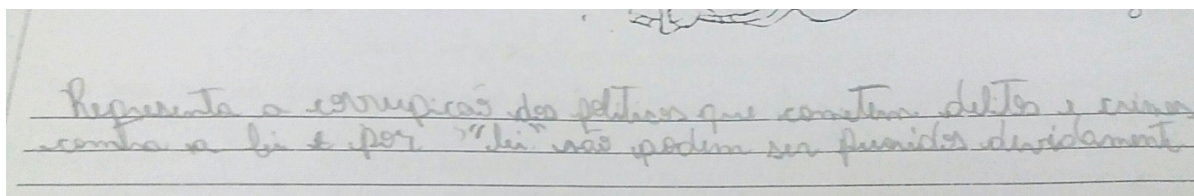 Representa a corrupicão dos politicos que cometem delitos e crimes
contra a lei e por "lei" não podem ser punidos devidament